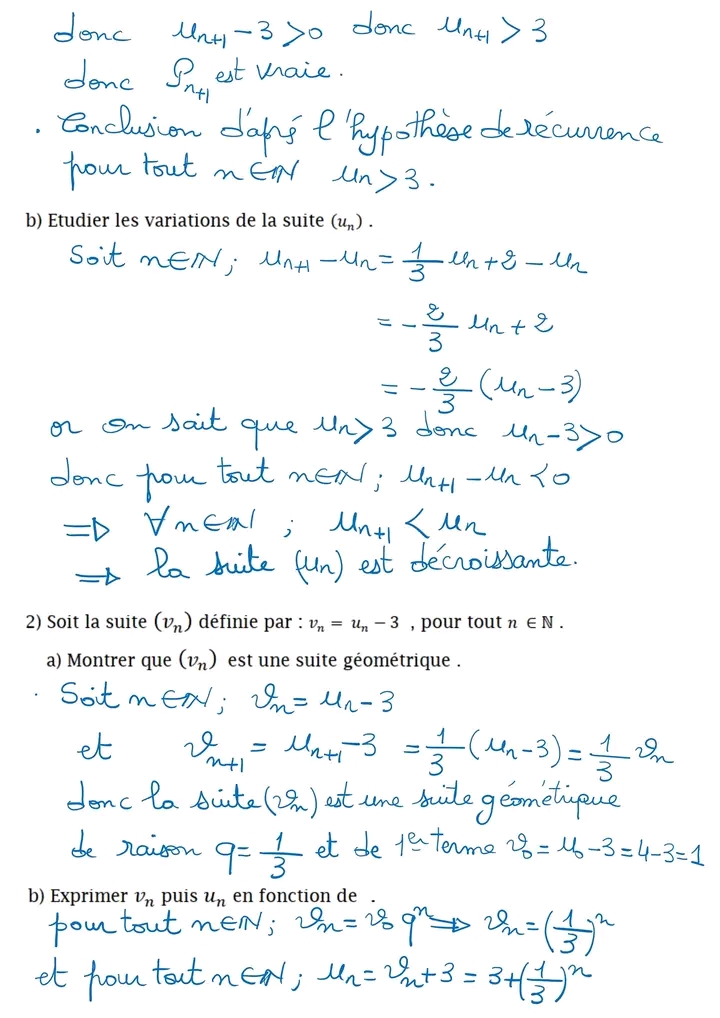 donc uₙ₊₁ - 3 > 0 donc uₙ₊₁ > 3
donc Pₙ₊₁ est vraie.
. Conclusion d'apré l'hypothèse de récurrence
pour tout n ∈ ℕ uₙ > 3.
b) Etudier les variations de la suite (uₙ) .
Soit n ∈ ℕ ; uₙ₊₁ - uₙ = 1/3 uₙ + 2 - uₙ
= - 2/3 uₙ + 2
= - 2/3 (uₙ - 3)
or on sait que uₙ > 3 donc uₙ - 3 > 0
donc pour tout n ∈ ℕ ; uₙ₊₁ - uₙ < 0
⇒ ∀ n ∈ ℕ ; uₙ₊₁ < uₙ
⇒ la suite (uₙ) est décroissante.
2) Soit la suite (vₙ) définie par : vₙ = uₙ - 3 , pour tout n ∈ ℕ .
a) Montrer que (vₙ) est une suite géométrique .
. Soit n ∈ ℕ ; vₙ = uₙ - 3
et vₙ₊₁ = uₙ₊₁ - 3 = 1/3 (uₙ - 3) = 1/3 vₙ
donc la suite (vₙ) est une suite géométrique
de raison q = 1/3 et de 1er terme v₀ = u₀ - 3 = 4 - 3 = 1
b) Exprimer vₙ puis uₙ en fonction de .
pour tout n ∈ ℕ ; vₙ = v₀ qⁿ ⇒ vₙ = (1/3)ⁿ
et pour tout n ∈ ℕ ; uₙ = vₙ + 3 = 3 + (1/3)ⁿ